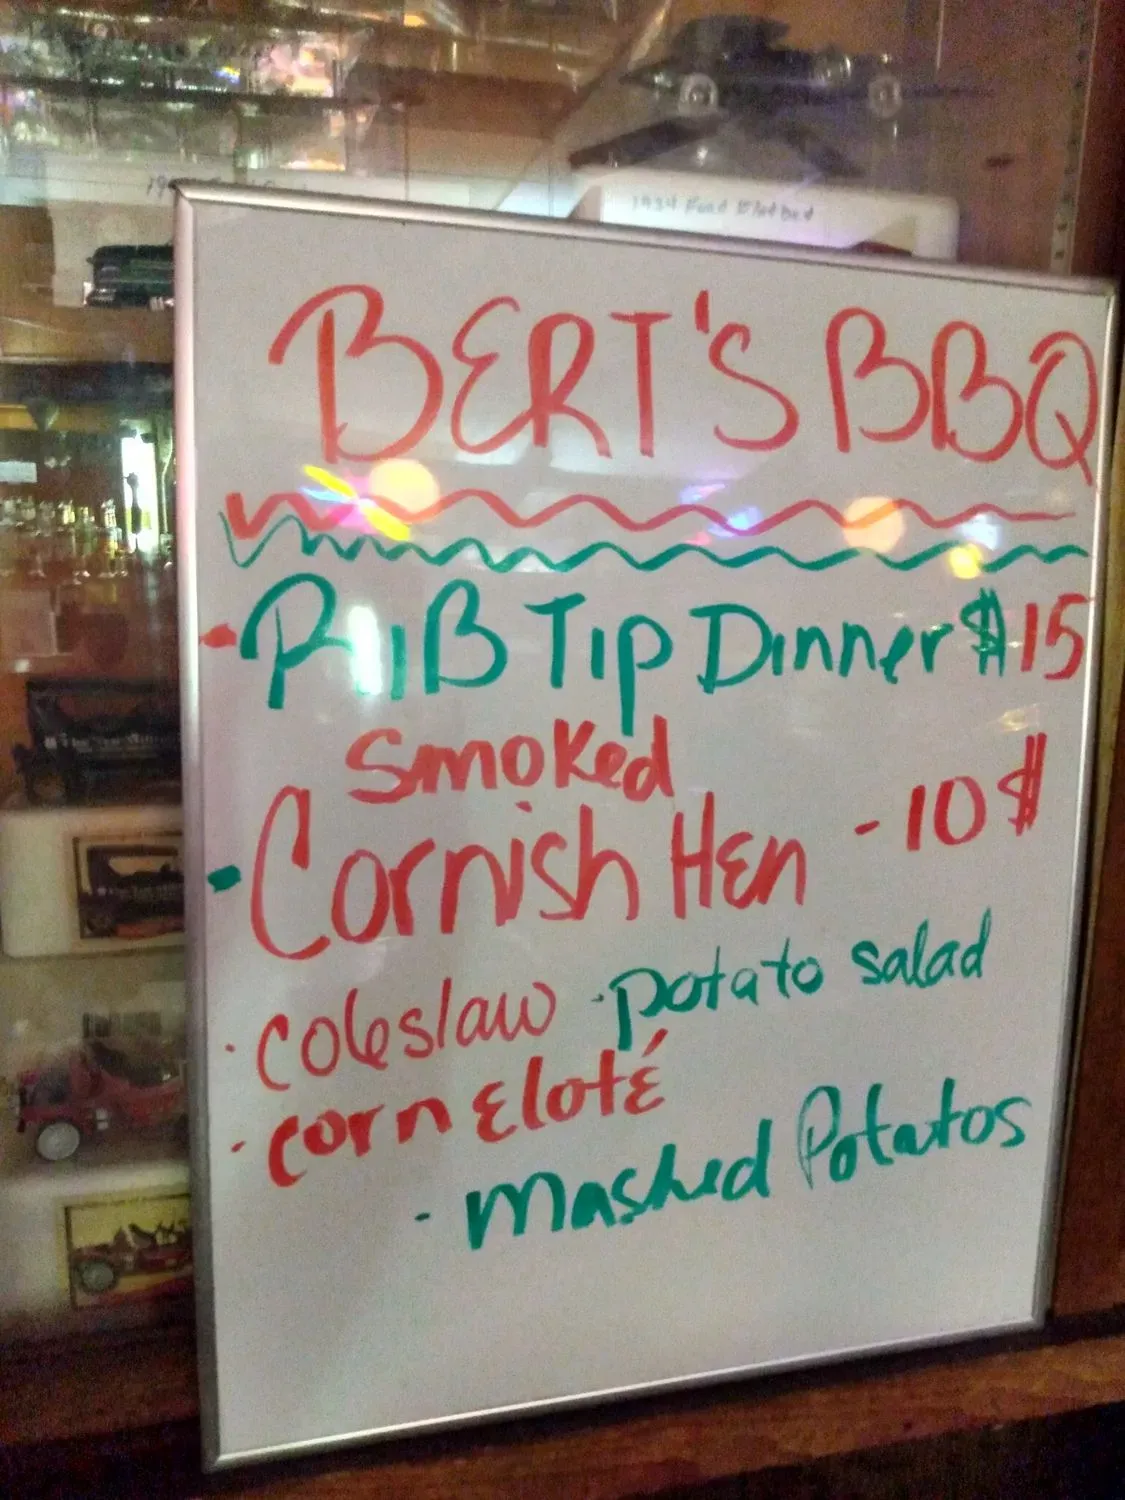 1934 Ford Flatbed
BERT'S BBQ
RIB TIP Dinner $15
Smoked
Cornish Hen - 10$
· coleslaw · potato salad
· corn Eloté
· Mashed Potatos